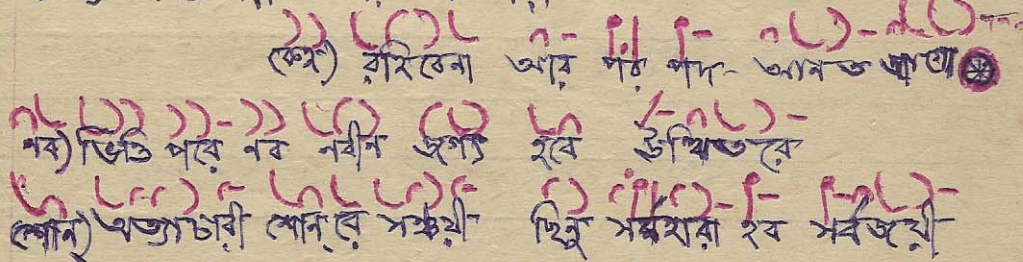 (কেহ) রহিবেনা আর পর পদ - আনত
নব) ভিত্তি পরে নব নবীন জগৎ হবে উত্থিতরে
শোন্) অত্যাচারী শোন্ রে সঞ্চয়ী ছিনু সর্ব্বহারা হব সর্বজয়ী